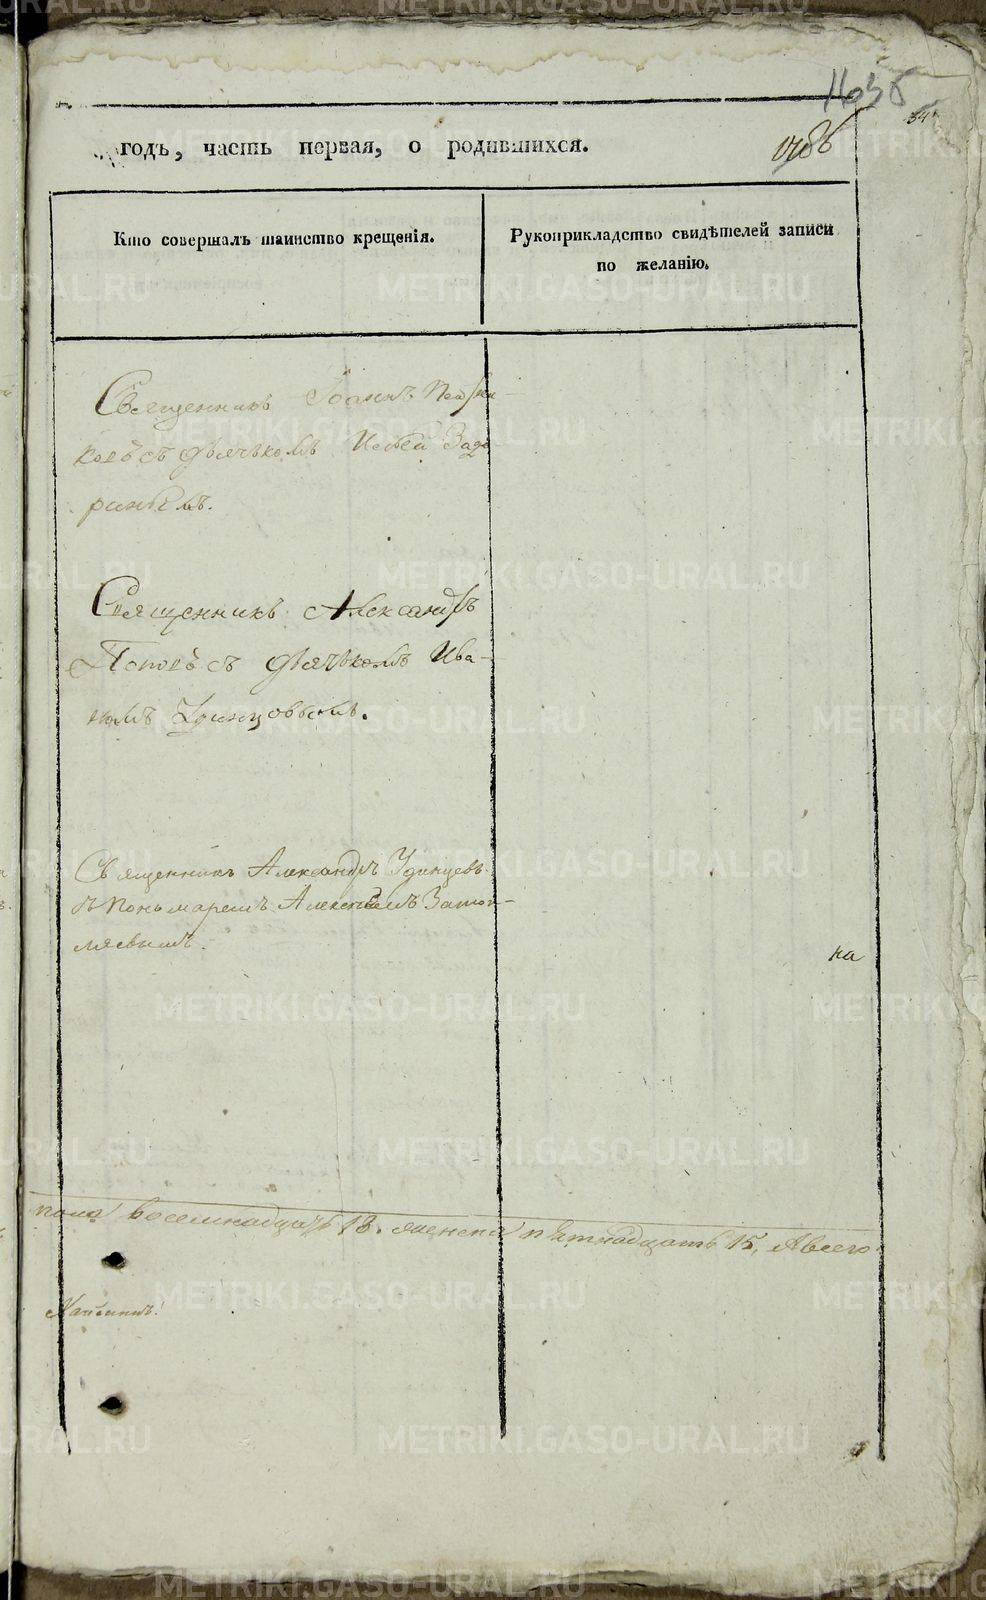 годъ, часть первая, о родившихся.
Кто совершалъ таинство крещенія.
Рукоприкладство свидѣтелей записи
по желанію.
Священникъ Іоаннъ
съ дьячкомъ
Священникъ Александръ
Поповъ съ дьячкомъ Ива-
номъ Удинцовымъ.
Священникъ Александръ Удинцевъ
съ пономаремъ Алексѣемъ Затоп-
ляевымъ.
на
пола восемнадцать 18. женска пятнадцать 15, Авсего
METRIKI.GASO-URAL.RU